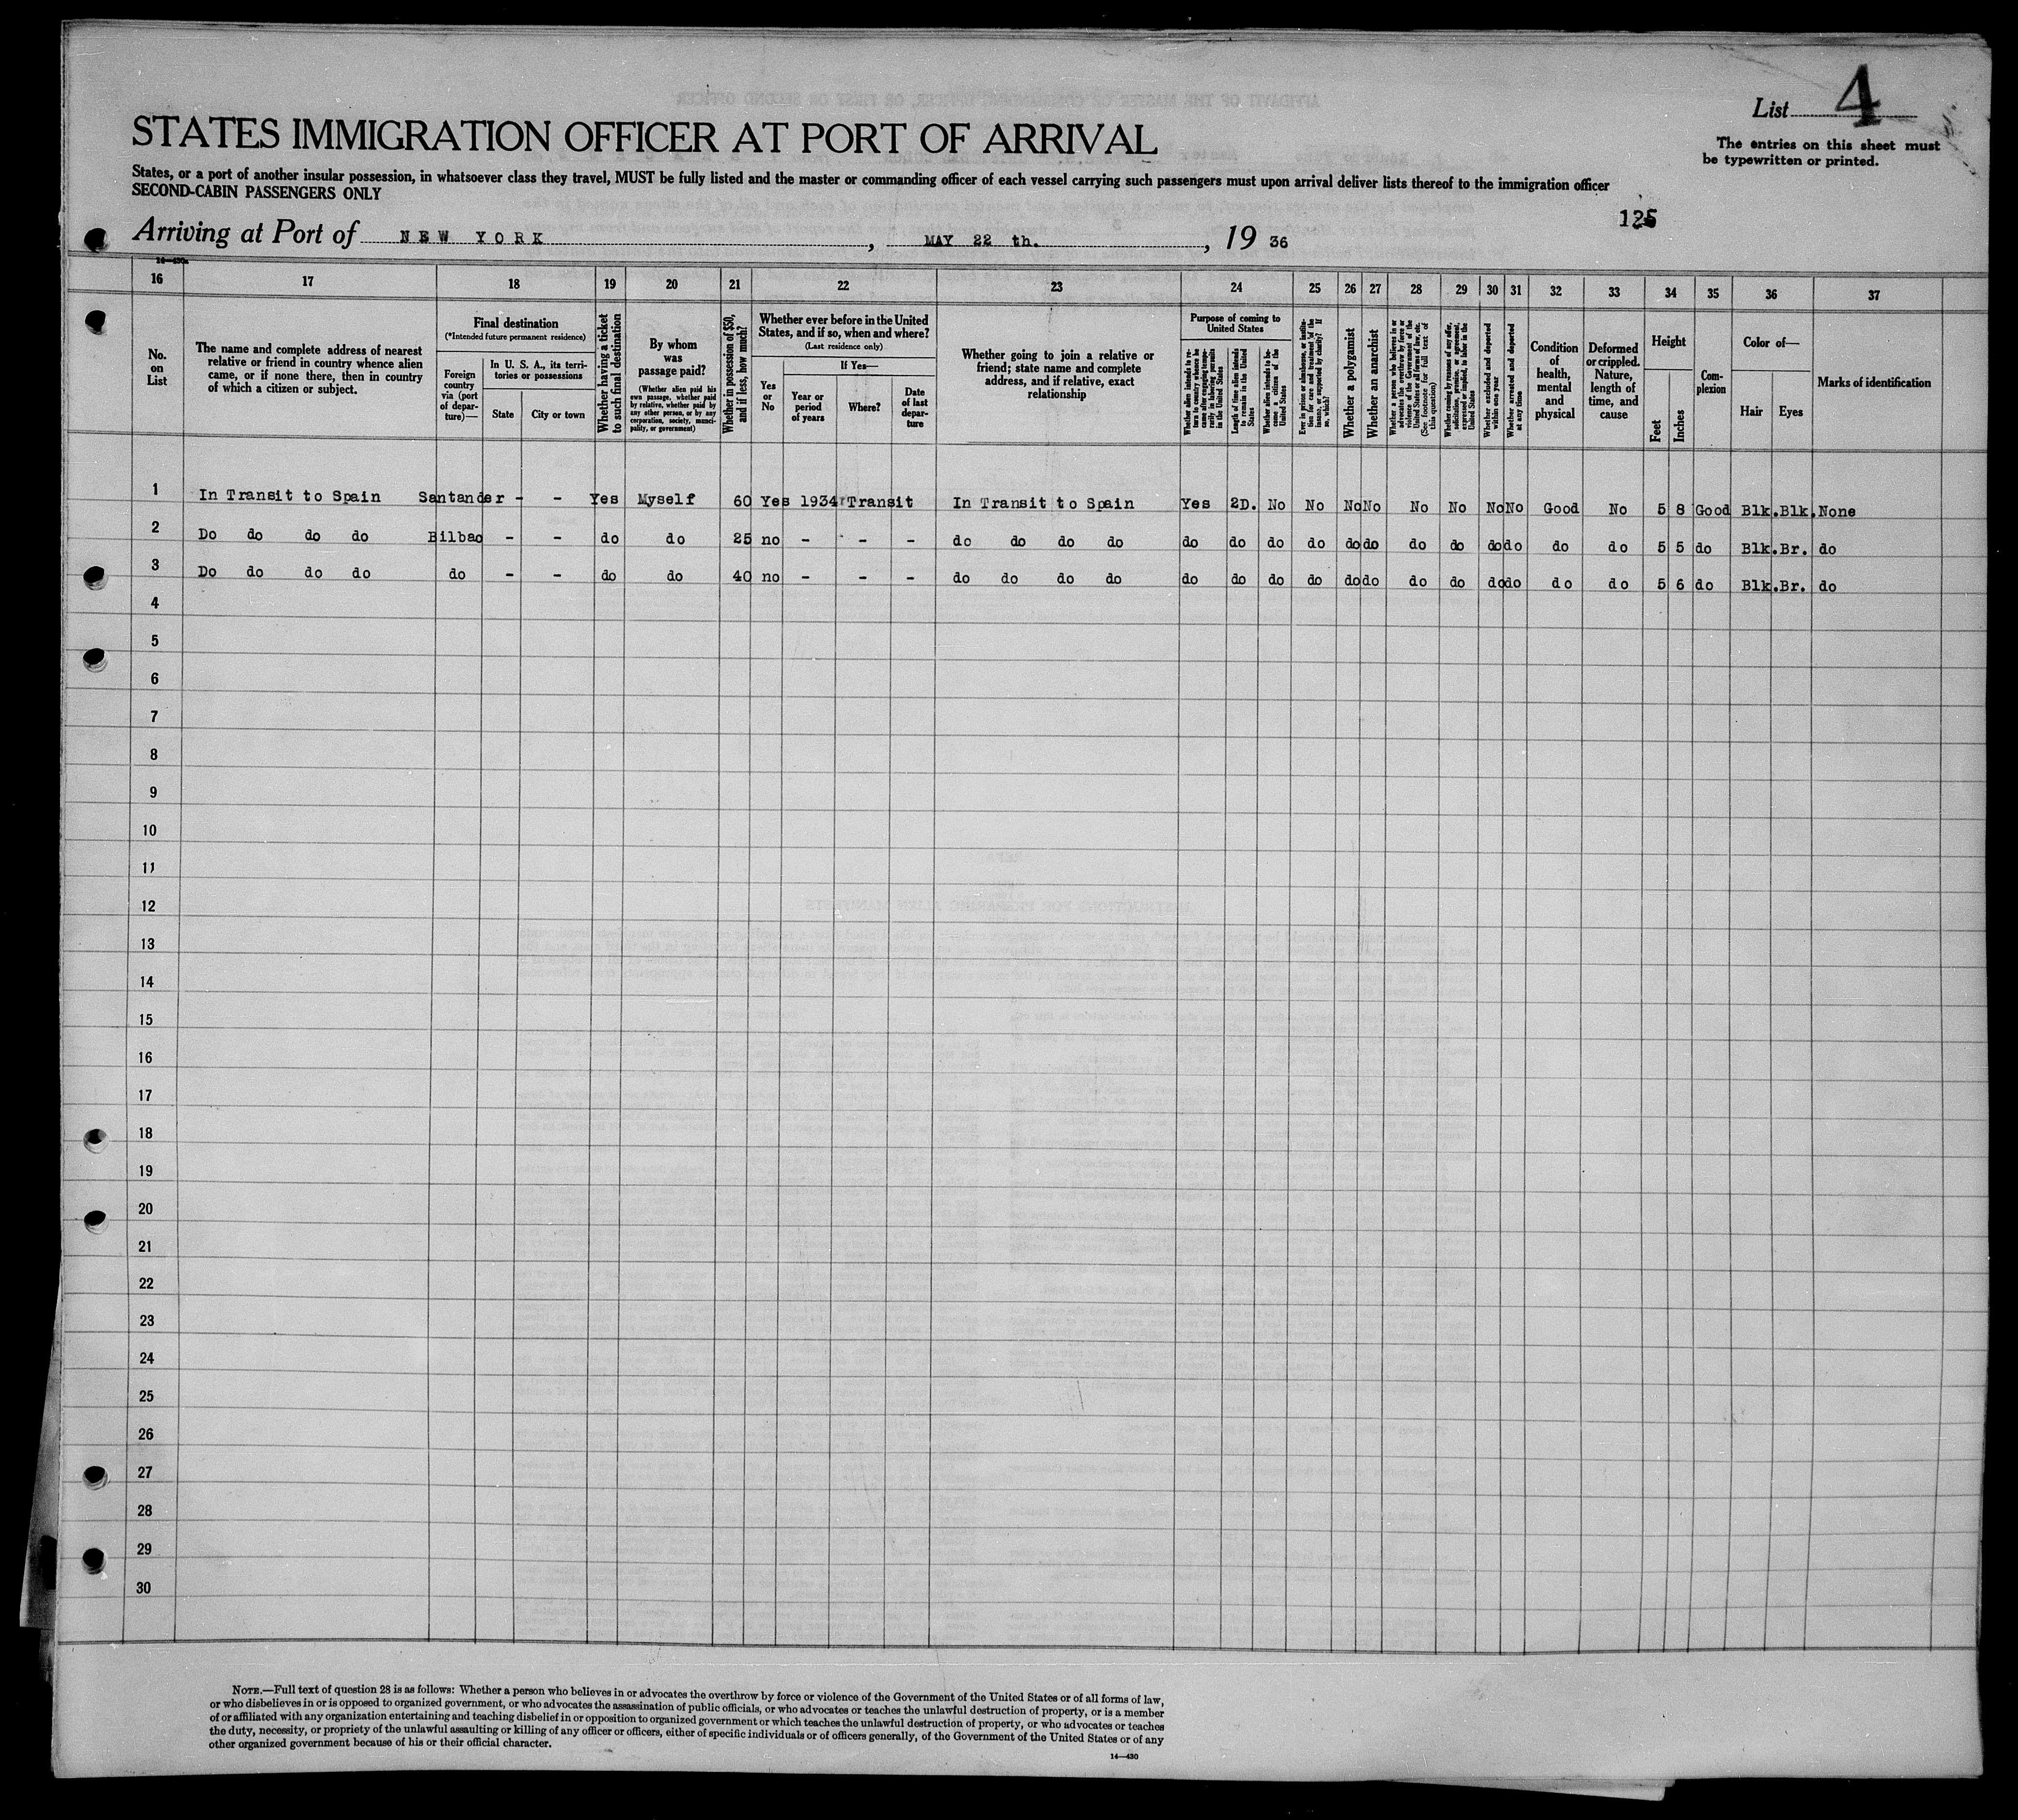 List 4
The entries on this sheet must
be typewritten or printed.
STATES IMMIGRATION OFFICER AT PORT OF ARRIVAL
States, or a port of another insular possession, in whatsoever class they travel, MUST be fully listed and the master or commanding officer of each vessel carrying such passengers must upon arrival deliver lists thereof to the immigration officer
SECOND-CABIN PASSENGERS ONLY
Arriving at Port of NEW YORK, MAY 22 th., 19 36
16 17 18 19 20 21 22 23 24 25 26 27 28 29 30 31 32 33 34 35 36 37
No.
on
List
The name and complete address of nearest
relative or friend in country whence alien
came, or if none there, then in country
of which a citizen or subject.
Final destination
(*Intended future permanent residence)
Foreign
country
via (port
of depar-
ture)—
In U. S. A., its terri-
tories or possessions
State
City or town
Whether having a ticket
to such final destination
By whom
was
passage paid?
(Whether alien paid his
own passage, whether paid
by relative, whether paid by
any other person, or by any
corporation, society, munici-
pality, or government)
Whether in possession of $50,
and if less, how much?
Whether ever before in the United
States, and if so, when and where?
(Last residence only)
Yes
or
No
If Yes—
Year or
period
of years
Where?
Date
of last
depar-
ture
Whether going to join a relative or
friend; state name and complete
address, and if relative, exact
relationship
Purpose of coming to
United States
Whether alien intends to re-
turn to country whence he
came after engaging tempo-
rarily in laboring pursuits
in the United States
Length of time alien intends
to remain in the United
States
Whether alien intends to be-
come a citizen of the
United States
Ever in prison or almshouse, or institu-
tion for care and treatment of the
insane, or supported by charity? If
so, which?
Whether a polygamist
Whether an anarchist
Whether a person who believes in or
advocates the overthrow by force or
violence of the Government of the
United States or all forms of law, etc.
(See footnote for full text of
this question)
Whether coming by reasons of any offer,
solicitation, promise, or agreement,
expressed or implied, to labor in the
United States
Whether excluded and deported
within one year
Whether arrested and deported
at any time
Condition
of
health,
mental
and
physical
Deformed
or crippled.
Nature,
length of
time, and
cause
Height
Feet
Inches
Com-
plexion
Color of—
Hair
Eyes
Marks of identification
1 In Transit to Spain Santander - - Yes Myself 60 Yes 1934 Transit In Transit to Spain Yes 2D. No No No No No No No No Good No 5 8 Good Blk. Blk. None
2 Do do do do Bilbao - - do do 25 no - - - do do do do do do do do do do do do do do do do 5 5 do Blk. Br. do
3 Do do do do do - - do do 40 no - - - do do do do do do do do do do do do do do do do 5 6 do Blk. Br. do
4
5
6
7
8
9
10
11
12
13
14
15
16
17
18
19
20
21
22
23
24
25
26
27
28
29
30
NOTE.—Full text of question 28 is as follows: Whether a person who believes in or advocates the overthrow by force or violence of the Government of the United States or of all forms of law,
or who disbelieves in or is opposed to organized government, or who advocates the assassination of public officials, or who advocates or teaches the unlawful destruction of property, or is a member
of or affiliated with any organization entertaining and teaching disbelief in or opposition to organized government or which teaches the unlawful destruction of property, or who advocates or teaches
the duty, necessity, or propriety of the unlawful assaulting or killing of any officer or officers, either of specific individuals or of officers generally, of the Government of the United States or of any
other organized government because of his or their official character.
14—430